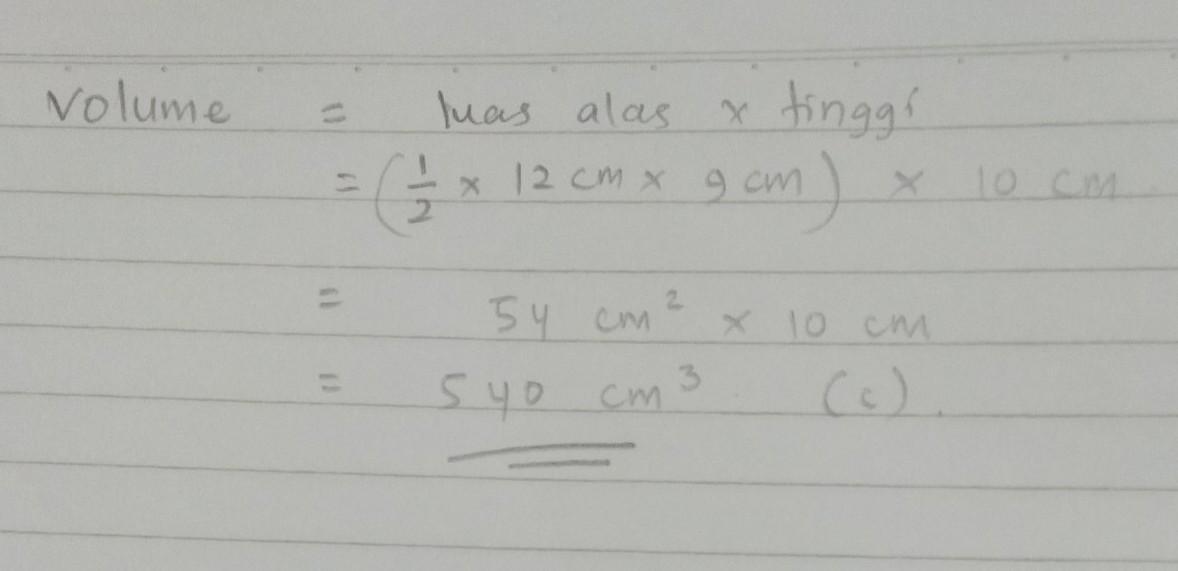 Volume = luas alas x tinggi
= (1/2 x 12 cm x 9 cm) x 10 cm
= 54 cm² x 10 cm
= 540 cm³ (c).